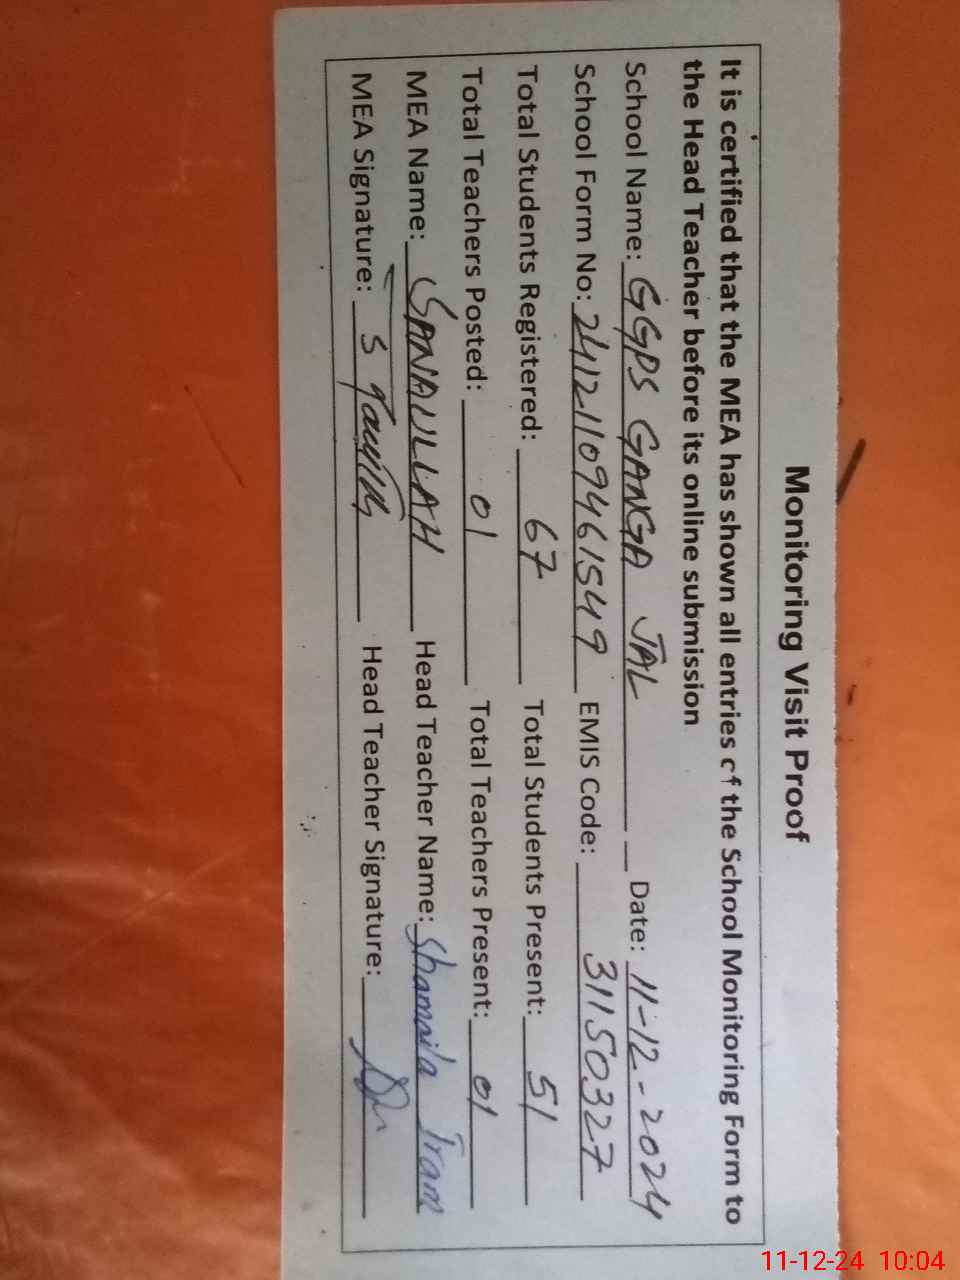 Monitoring Visit Proof
It is certified that the MEA has shown all entries of the School Monitoring Form to
the Head Teacher before its online submission
School Name: GGPS GANGA JAL Date: 11-12-2024
School Form No: 24121109461549 EMIS Code: 31150327
Total Students Registered: 67 Total Students Present: 51
Total Teachers Posted: 01 Total Teachers Present: 01
MEA Name: SANAULLAH Head Teacher Name: Shamaila Iram
MEA Signature: Head Teacher Signature:
11-12-24 10:04